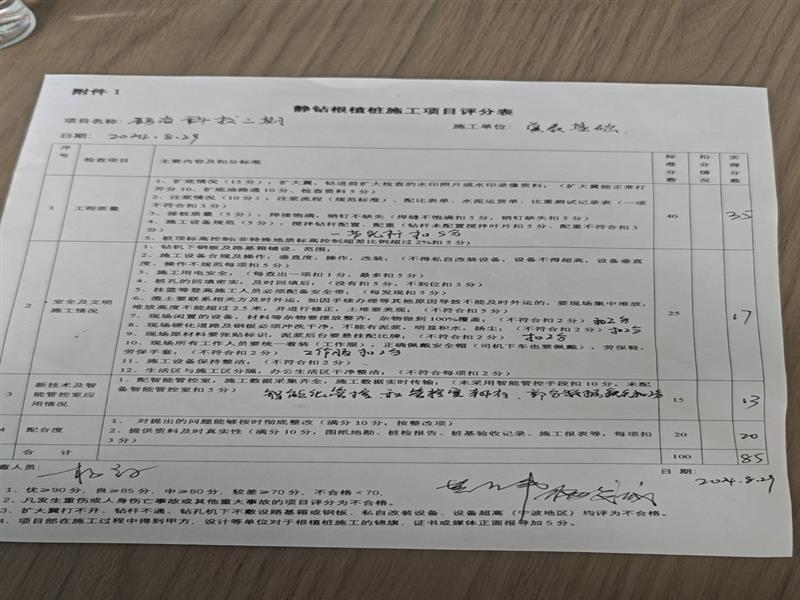 附件 1
静钻根植桩施工项目评分表
项目名称: 科技二期 施工单位: 基础
日期: 2024.8.29
序号 检查项目 主要内容及扣分标准 标准分数 扣分情况 实得分数
1 工程质量 40 35
1、扩底情况（15分）：扩大翼，钻进前扩大检查的水印照片或水印录像资料；（扩大翼能正常打开分 10、扩底油路通 10 分、检查资料 5 分）
2、注浆情况（10 分）：注浆流程（规范标准）、配比表单、水泥运货单、比重测试记录表（一项不符合扣 3 分）
3、接桩质量（5 分）：焊接饱满，销钉不缺失（焊缝不饱满扣 5 分，销钉缺失扣 5 分）
4、施工设备规范（5 分）：搅拌钻杆配置、配重（钻杆未配置搅拌叶片扣 5 分、配重不符合扣 3 分）
扣5分
5、桩顶标高控制(非特殊地质标高控制超差比例超过 2%扣 5 分)
2 安全及文明施工情况 25 17
1、钻机下钢板及路基箱铺设，范围；
2、施工设备合规及操作：垂直度，操作，改装；（不得私自改装设备，设备不得超高，设备垂直度、操作不规范每项扣 5 分）
3、施工用电安全；（每查出一项扣 1 分，最多扣 5 分）
4、桩孔的回填密实；及时回填后；（没有扣 5 分，不到位扣 3 分）
5、挂篮等登高施工人员必须配备安全带；（每发现扣 5 分）
6、渣土要联系相关方及时外运，如因手续办理等其他原因导致不能及时外运的，要现场集中堆放，堆放高度不能超过 2.5 米，并进行修正，土堆要美观；（不符合扣 5 分）
7、现场闲置的设备，材料等杂物要摆放整齐，杂物做到 100%覆盖；（不符合扣 2 分） 扣2分
8、现场硬化道路及钢板必须冲洗干净，不能有泥浆，明显积水，扬尘；（不符合扣 2 分） 扣2分
9、现场原材料要张贴标识，泥浆后台要悬挂配比牌；（不符合扣 2 分） 扣2分
10、现场所有工作人员要统一着装（工作服），正确佩戴安全帽（司机下车也要佩戴），劳保鞋，劳保手套；（不符合扣 2 分） 工作服扣2分
11、施工设备保持整洁；（不符合扣 2 分）
12、生活区与施工区分隔，办公生活区干净整洁；（不符合每项扣 2 分）
3 新技术及智能管控室应用情况 15 13
1、配智能管控室，施工数据采集齐全，施工数据实时传输；（未采用智能管控手段扣 10 分，未配备智能管控室扣 5 分） 智能化管控
4 配合度 20 20
1、 对提出的问题能够按时彻底整改（满分 10 分，按整改项）
2、提供资料及时真实性（满分 10 分，图纸地勘、桩检报告、桩基验收记录、施工报表等，每项扣 3 分）
合 计 100 85
查人员: 日 期: 2024.8.29
1、优≥90 分，良≥85 分，中≥80 分，较差≥70 分，不合格<70，
2、凡发生重伤或人身伤亡事故或其他重大事故的项目评分为不合格。
3、扩大翼打不开、钻杆不通、钻孔机下不敷设路基箱或钢板、私自改装设备、设备超高（宁波地区）均评为不合格。
4、项目部在施工过程中得到甲方，设计等单位对于根植桩施工的锦旗、证书或媒体正面报导加 5 分。